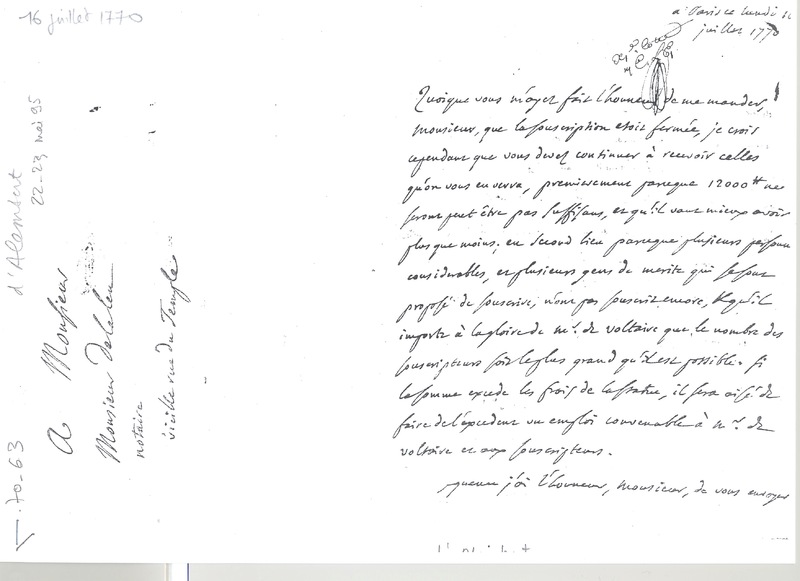 16 juillet 1770
d'Alembert
22-23 mai 95
70-63
A Monsieur
Monsieur Delaleu
notaire
vieille rue du Temple
à Paris ce lundi 16
juillet 1770
Quoique vous m'ayez fait l'honneur de me mander,
monsieur, que la souscription etoit fermée, je crois
cependant que vous devez continuer à recevoir celles
qu'on vous enverra, premierement parceque 12000 ₶ ne
seront peut être pas suffisans, et qu'il vaut mieux avoir
plus que moins; en second lieu parceque plusieurs personn
considerables, et plusieurs gens de merite qui se sont
proposé de souscrire, n'ont pas souscrit encore, & qu'il
importe à la gloire de mr. de voltaire que le nombre des
souscripteurs soit le plus grand qu'il est possible. Si
la somme excede les frais de la statue, il sera aisé de
faire de l'excedent un emploi convenable à mr. de
voltaire et aux souscripteurs.
j'ai l'honneur, monsieur, de vous envoyer